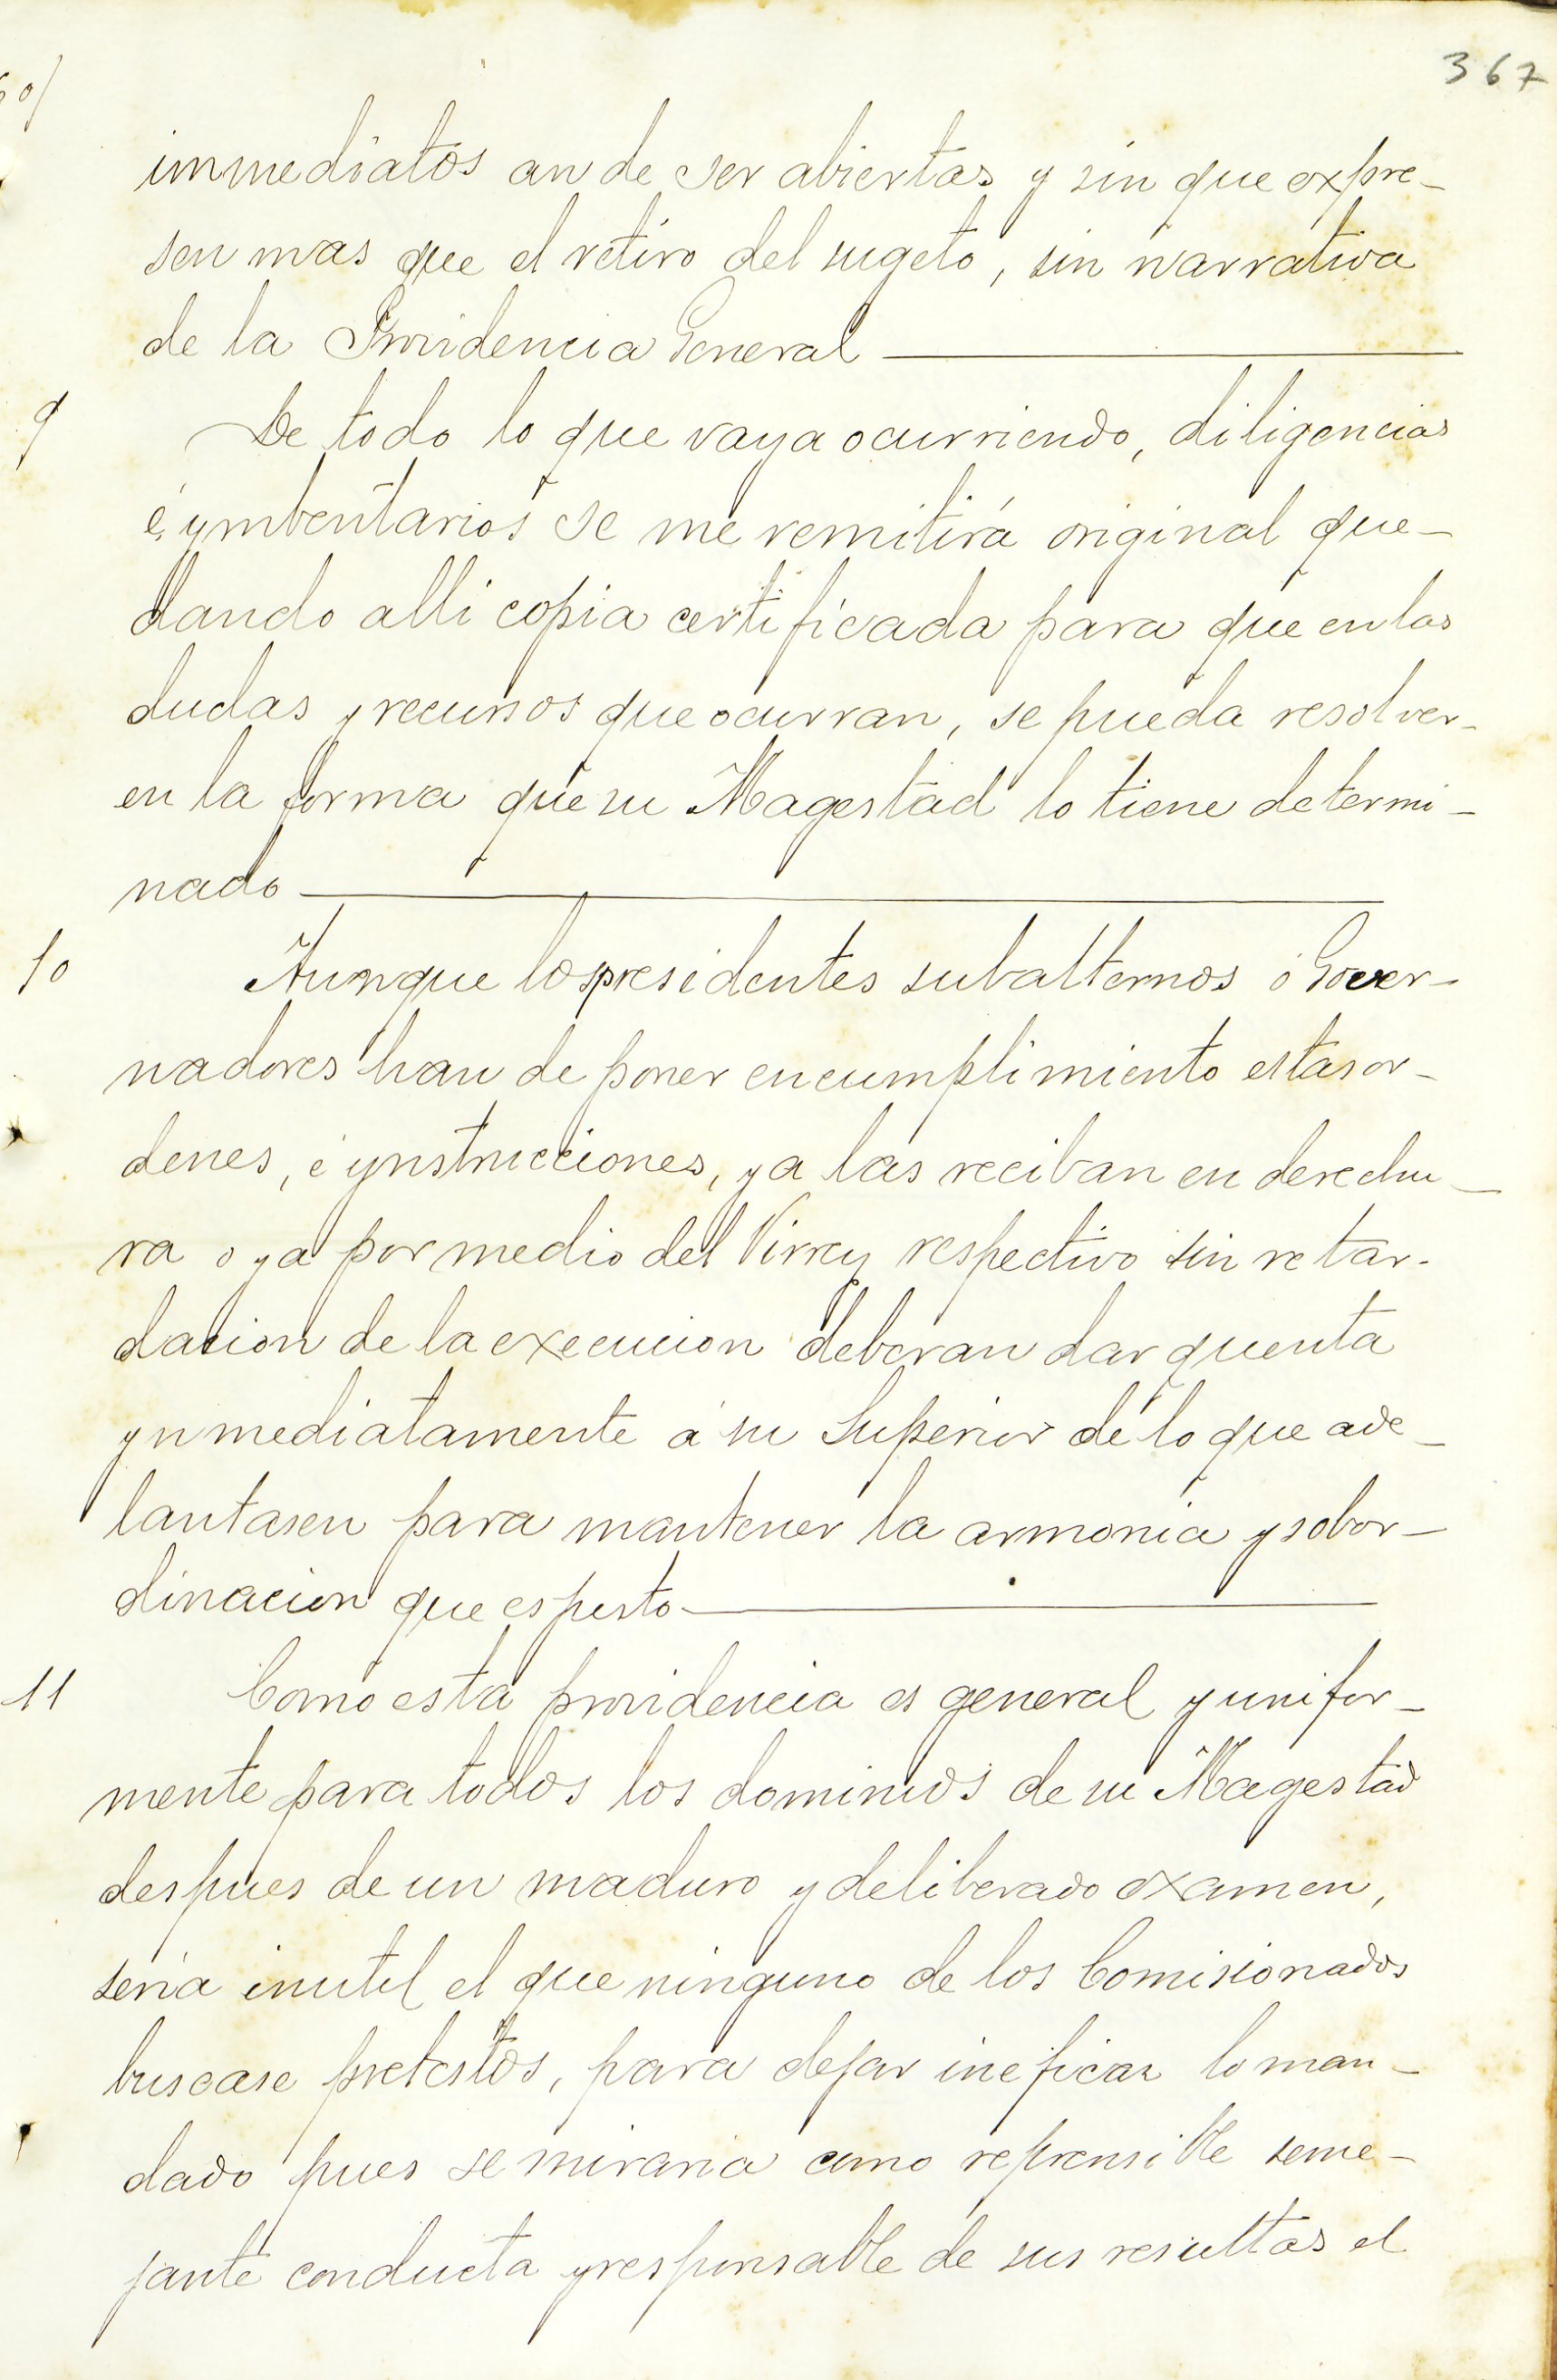 367
immediatos an de ser abiertas y sin que expre-
sen mas que el retiro del sugeto, sin narrativa
de la Providencia General
9 De todo lo que vaya ocurriendo, diligencias
é ymbentarios se me remitirá original que-
dando alli copia certificada para que en las
dudas y recursos que ocurran, se pueda resolver-
en la forma que su Magestad lo tiene determi-
nado
10 Aunque los presidentes subalternos ó Gover-
nadores han de poner en cumplimiento estas or-
denes, é ynstrucciones, ya las reciban en derechu-
ra o ya por medio del Virrey respectivo sin retar-
dacion de la execucion deberan dar quenta
ynmediatamente á su Superior de lo que ade-
lantasen para mantener la armonia y sobor-
dinacion que es justo
11 Como esta providencia es general y unifor-
mente para todos los dominios de su Magestad
despues de un maduro y deliberado examen,
seria inutil el que ninguno de los Comisionados
buscase pretestos, para dejar ineficaz lo man-
dado pues se miraria como reprensible seme-
jante conducta y responsable de sus resultas el